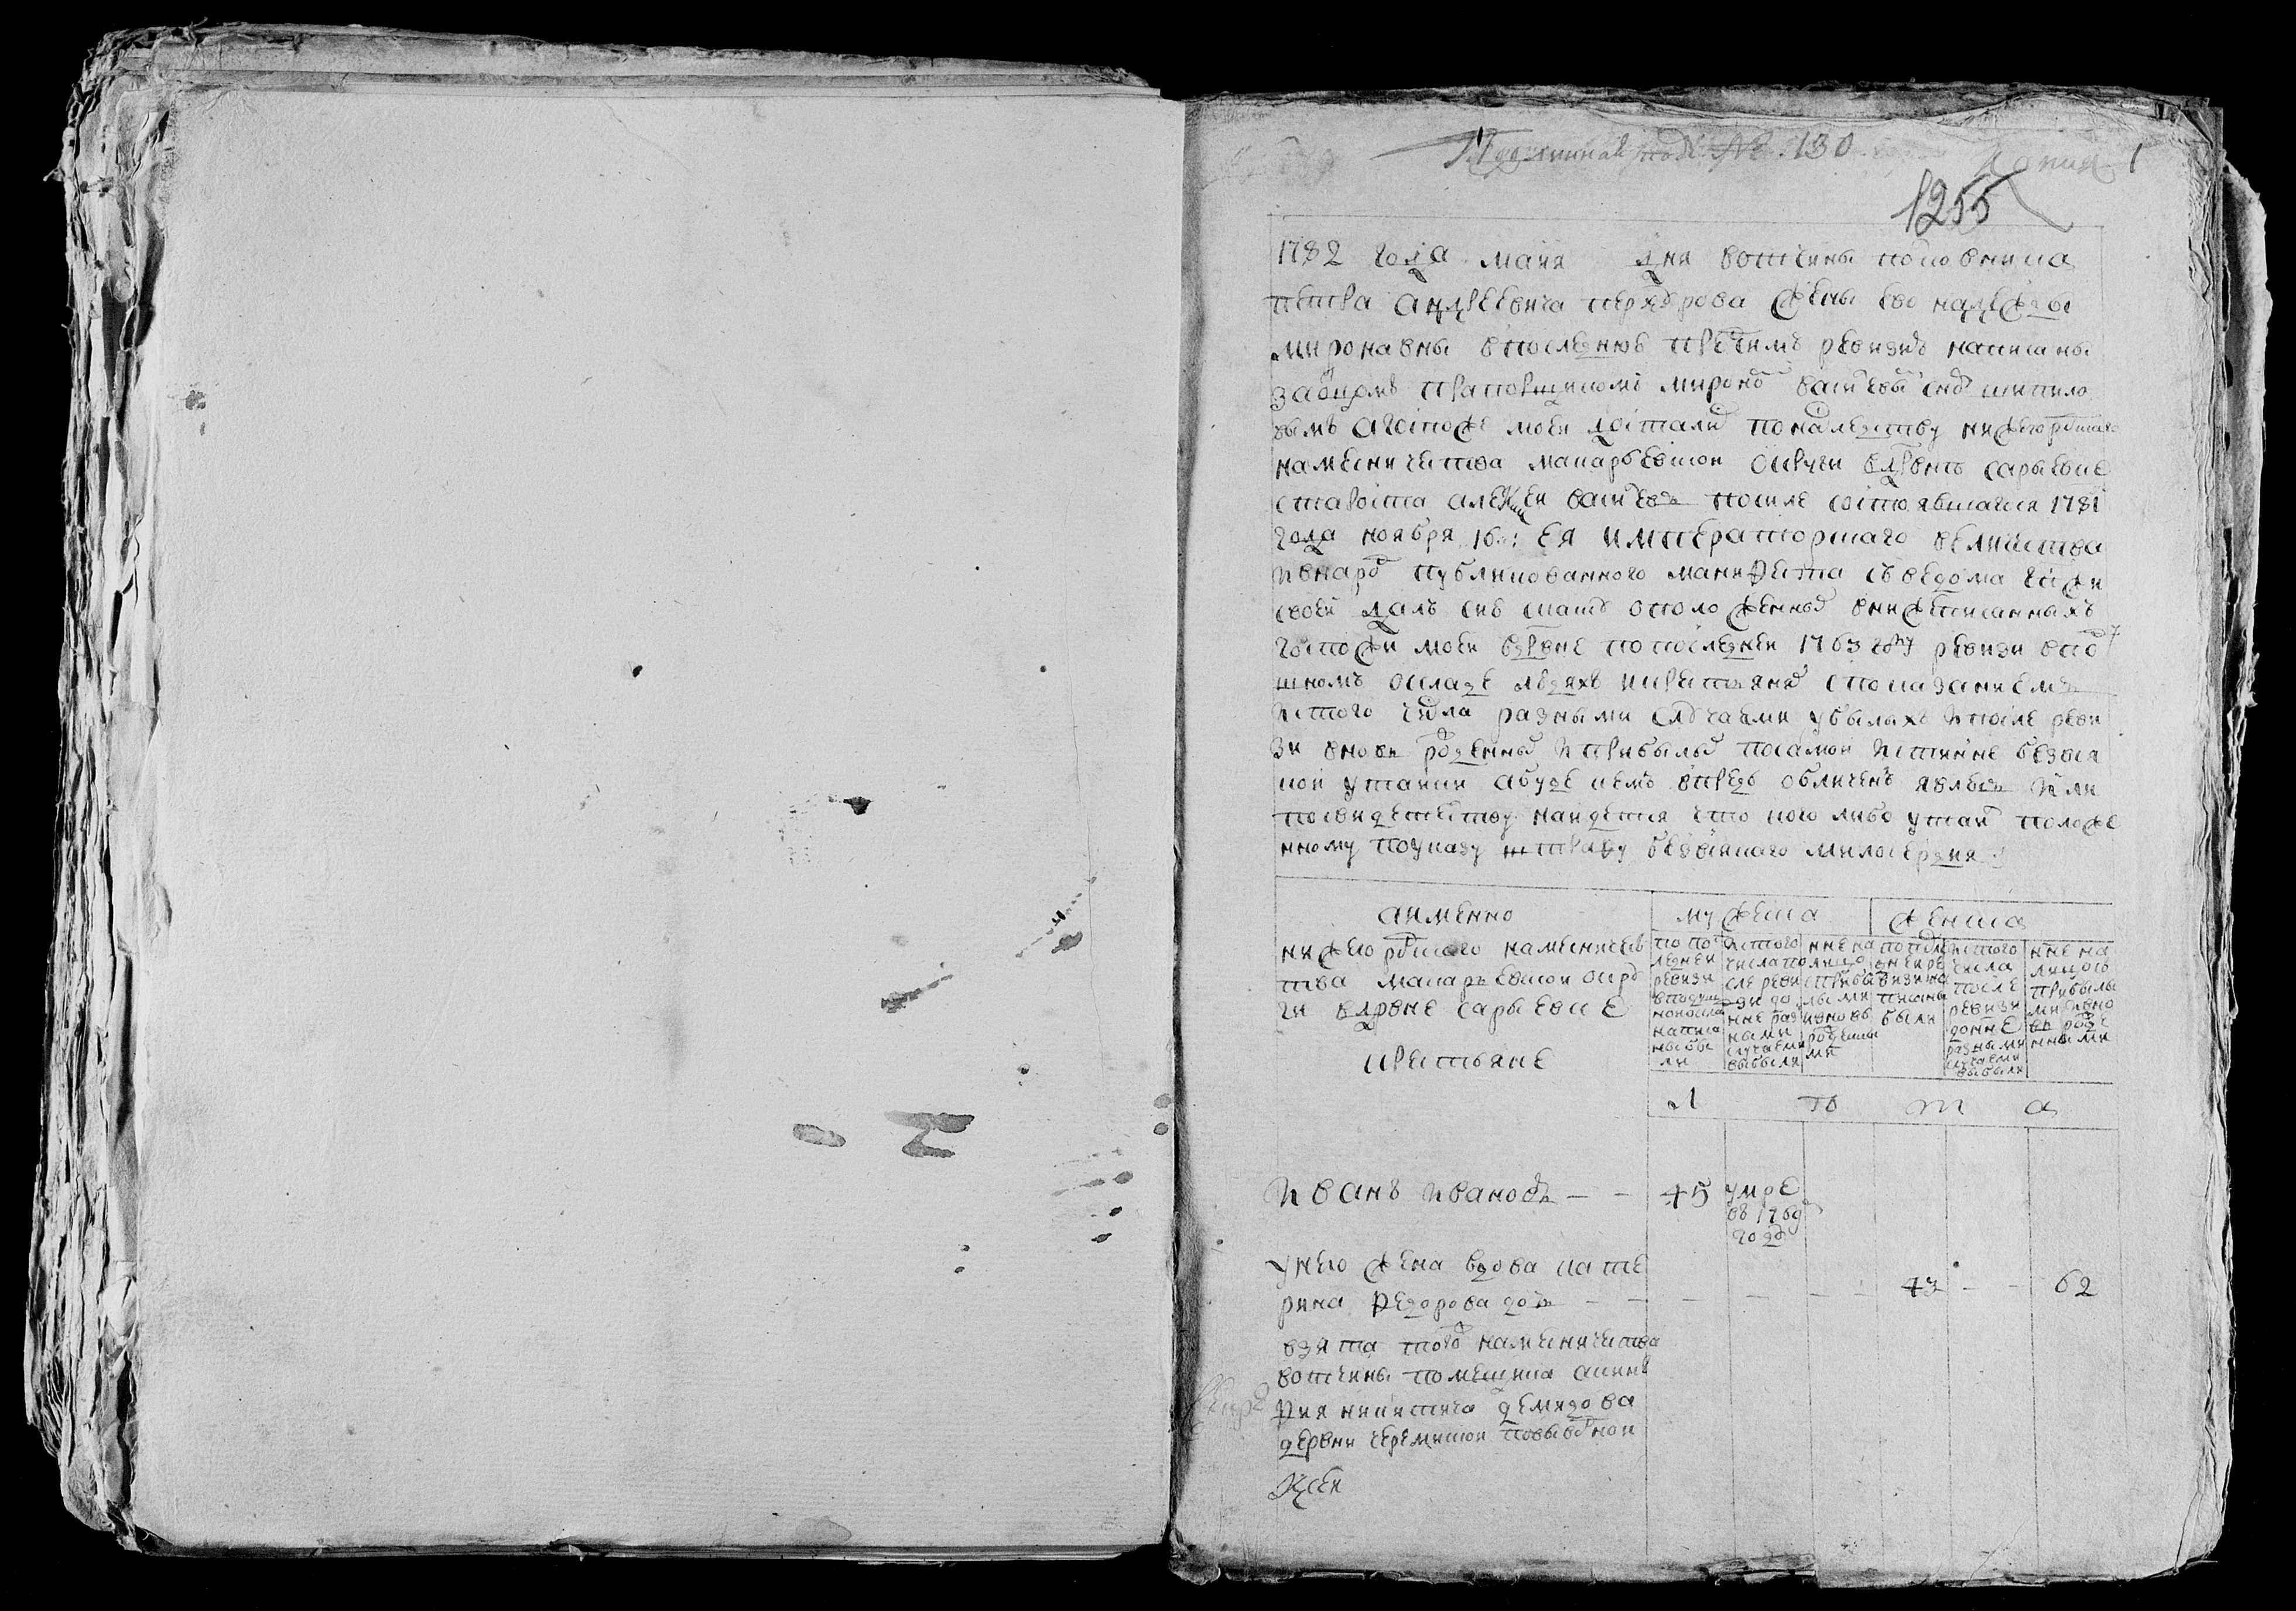 Подлинная под № 130
Копия 1
1255
1782 года майя дня вотчины полковника
петра андреевича жены ево надежды
мироновны впоследнюю пред симъ ревизию написаны
заотцомъ прапорщикомъ мирономъ васильевымъ сномъ шипило
вымъ агоспоже моей достались понаследству нижегороцкаго
наместничества макарьевской округи вдрвнъ сарыевке
староста алексеи васильевъ посиле состоявшагося 1781
года ноября 16: ея императорскаго величества
ивнародъ публикованного манифеста сведома гспжи
своей далъ сию скаску оположенныхъ внижеписанныхъ
госпожи моей вдрвне попоследней 1763 году ревизи впод
шномъ окладе людяхъ икрестьянехъ споказаниемъ
истого числа разными случаеми убылыхъ ипосле реви
зи вновь рожденныхъ иприбылыхъ посамой истинне безвся
кой утайки абуде чемъ впредь обличенъ явлюсь или
посвидетельству найдется что кого либо утаилъ положе
нному поуказу штрафу безвсякаго милосердия
аимянно
нижегороцкого наместничес
тва макарьевской окру
ги вдрвне сарыевке
крестьяне
мужеска
женска
по по
следней
ревизи
вподуш
номокла
написа
ныбы
ли
истого
числапо
сле реви
зи до
нне раз
ными
случаеми
выбыли
нне на
лицо
сприбы
лыми
ивновь
рожденны
ми
попосле
днейре
визина
писаны
были
истого
числа
после
ревизи
донне
разными
случаеми
выбыли
нне на
лицосъ
прибылы
миивно
вь рожде
нными
Л Ѣ т а
иванъ ивановъ – – 45 умре
въ 1769
годе
унево жена вдова кате
рина федорова дочь – – – – – – 43 – – 62
взята тогожъ наместничества
вотчины помещика
фия никитича демидова
дервни черемиской повыводной